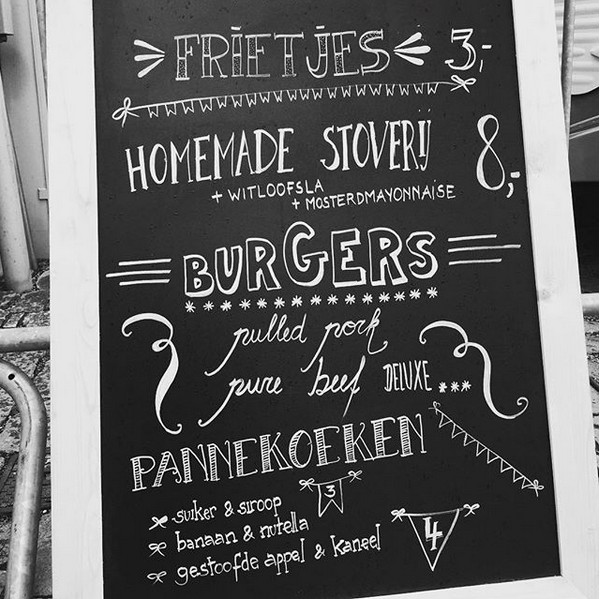 FRIETJES 3,-
HOMEMADE STOVERIJ 8,-
+ WITLOOFSLA
+ MOSTERDMAYONNAISE
BURGERS
pulled pork
pure beef DELUXE ...
PANNEKOEKEN
suiker & siroop 3
banaan & nutella
gestoofde appel & kaneel 4